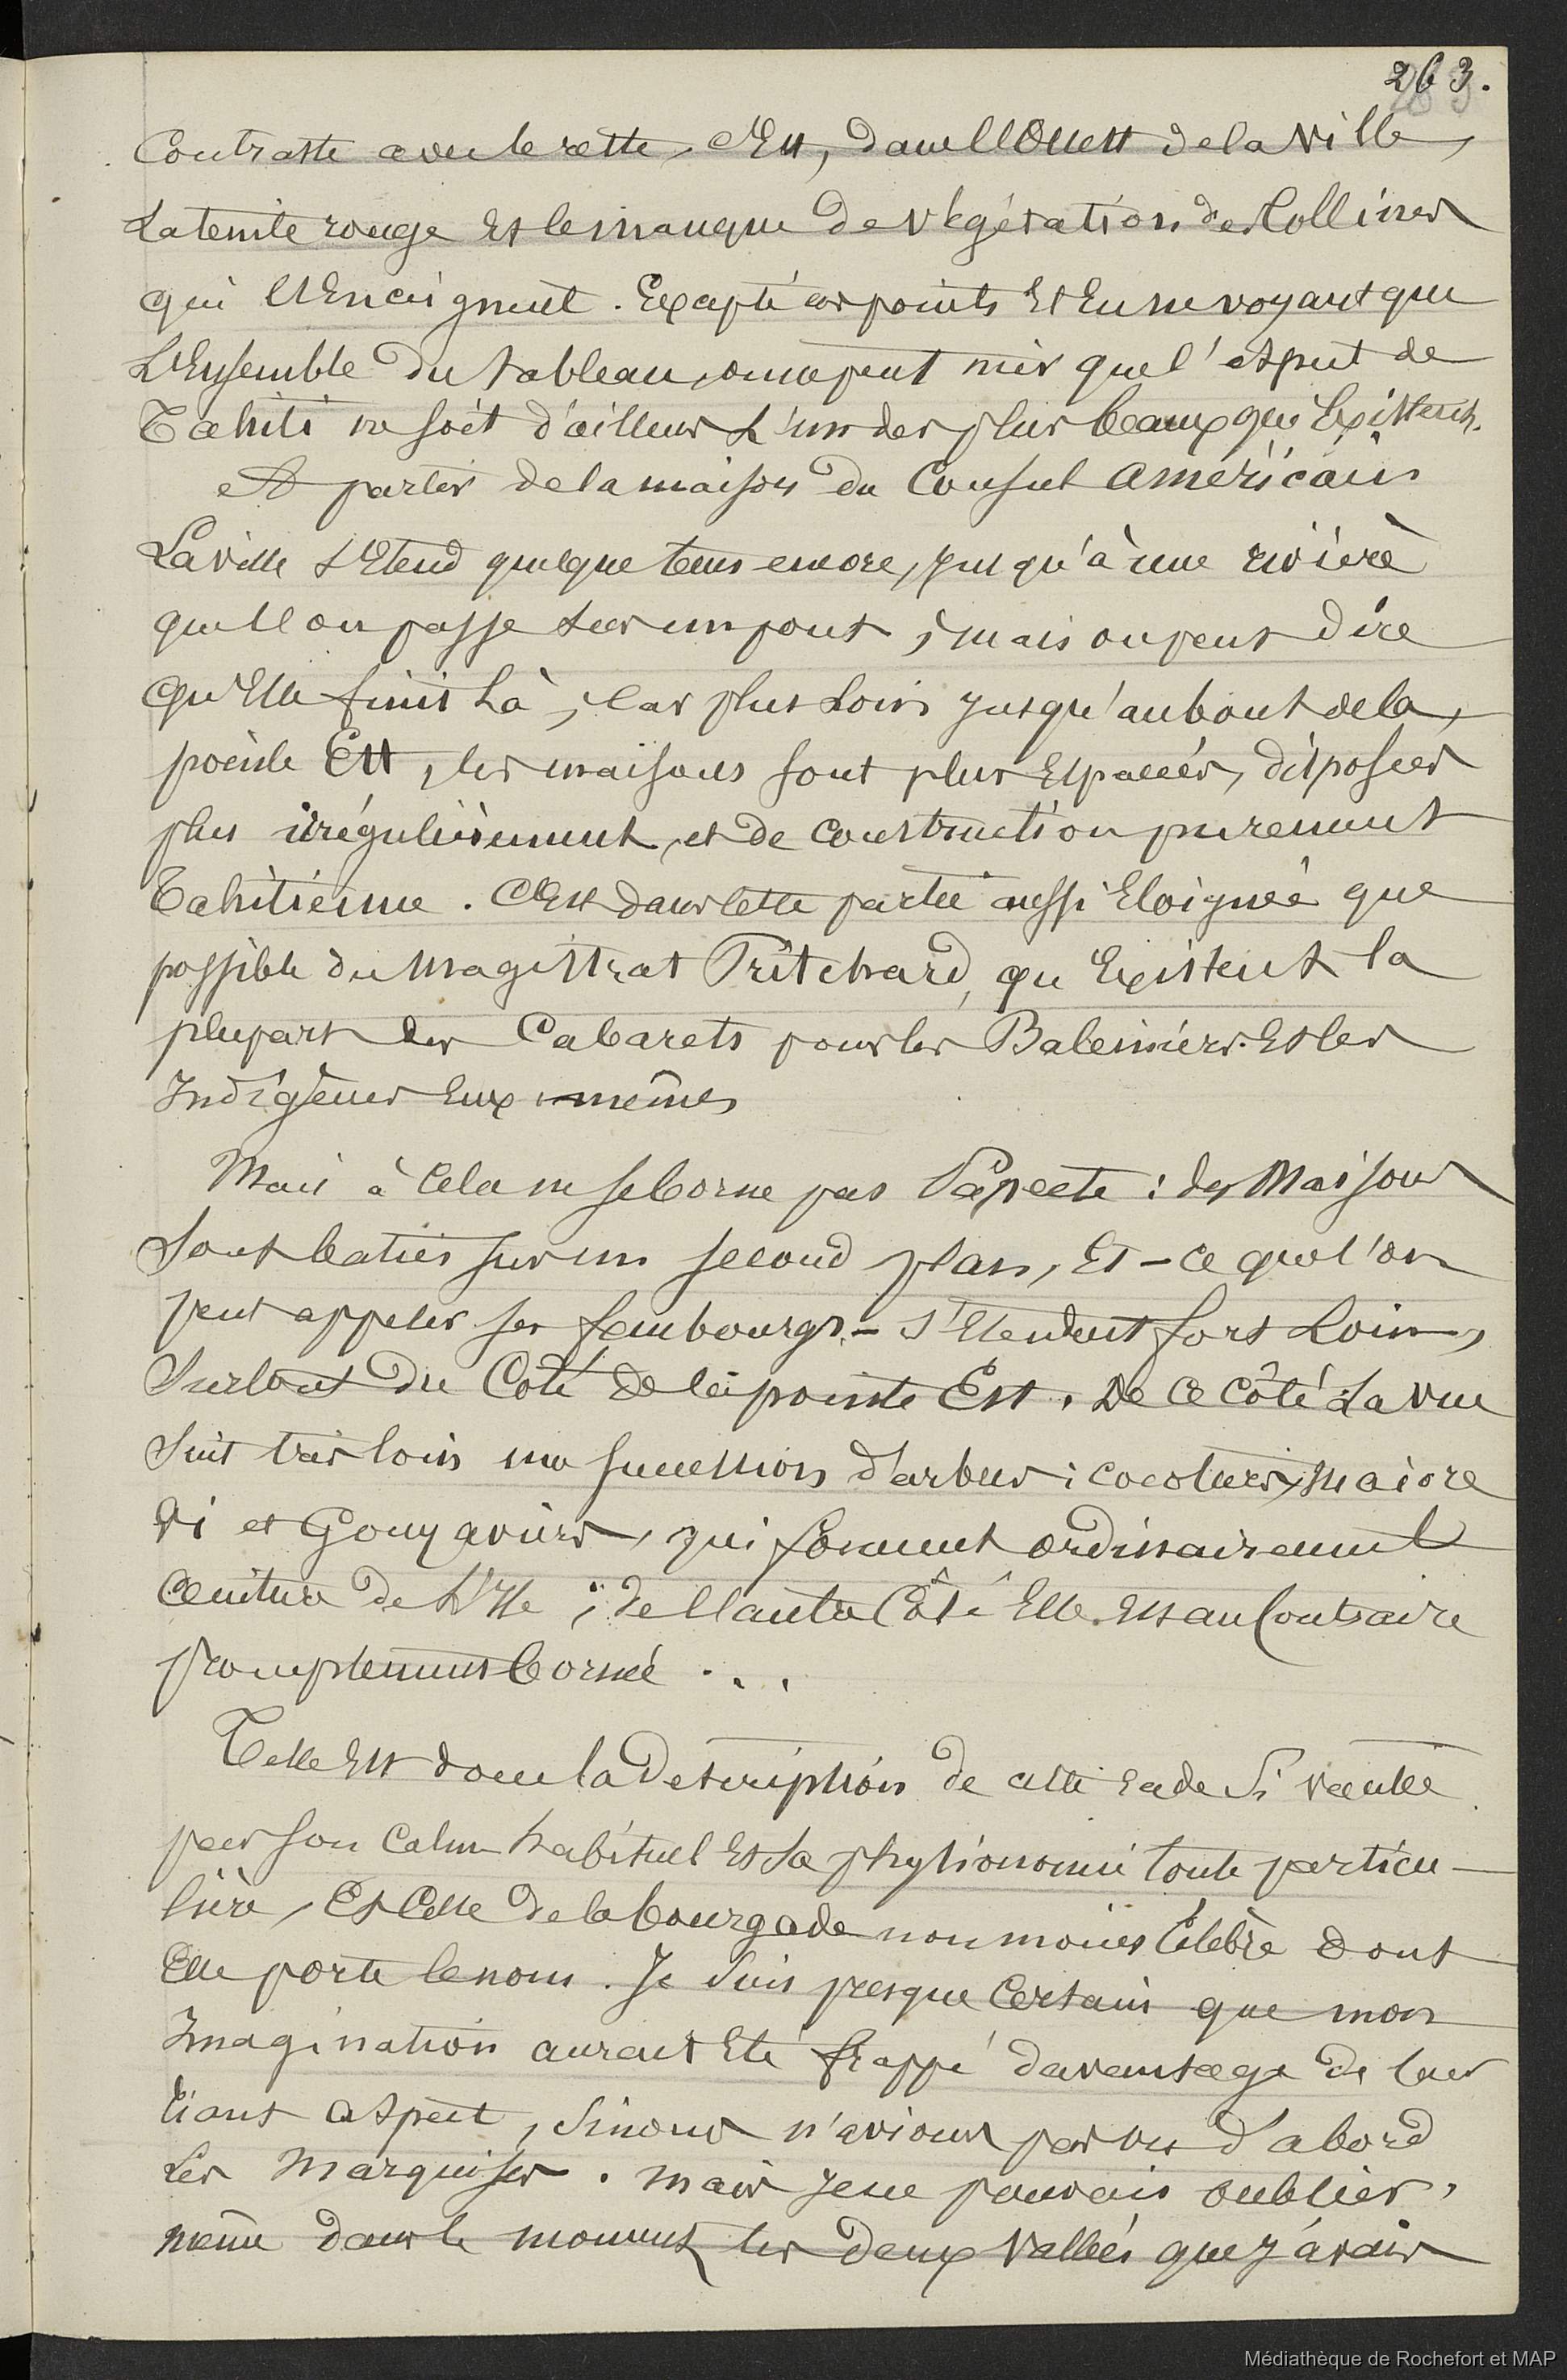 263.
Contraste avec le reste, c'Est, dans l'Ouest de la Ville,
La teinte rouge et le manque de végétation des Collines
qui l'Enceignent. Excepté ces points Et En ne voyant que
L'Ensemble du tableau, on ne peut nier que l'aspect de
Tahiti ne soit d'ailleurs L'un des plus beaux qui Existent.
A partir de la maison du Consul Américain
La ville s'Etend quelque tems encore, jusqu'à une rivière
que l'on passe sur un pont ; mais on peut dire
qu'Elle finit Là ; Car plus Loin jusqu'au bout de la
pointe Est, les maisons sont plus Espacées, disposées
plus irrégulièrement, et de Construction purement
Tahitienne. C'Est dans Cette partie aussi Eloignée que
possible du Magistrat Pritchard, qu'Existent la
plupart des Cabarets pour les Baleiniers Et les
Indigènes Eux-mêmes
Mais à Cela ne se borne pas Papeete : des Maisons
Sont baties sur un second plan, Et – ce que l'on
peut appeler ses faubourgs – s'Etendent fort Loin,
Surtout du Coté de la pointe Est. De Ce Côté La vue
Suit très loin une succession d'arbres : cocotiers, maiore
Vi et Gouyaviers, qui forment ordinairement
Ceinture de L'Ile ; de l'autre Côté Elle Est au Contraire
promptement bornée ...
Telle Est donc la Description de cette rade Si vantée
par son Calme habituel Et Sa physionomie toute particu-
lière, Et Celle de la bourgade non moins Célèbre dont
Elle porte le nom. Je Suis presque Certain que mon
Imagination aurait Eté frappé davantage de leur
riant aspect, Si nous n'avions pas vu d'abord
Les Marquises. Mais je ne pouvais oublier,
même dans le moment, les deux Vallées que j'avais
Médiathèque de Rochefort et MAP